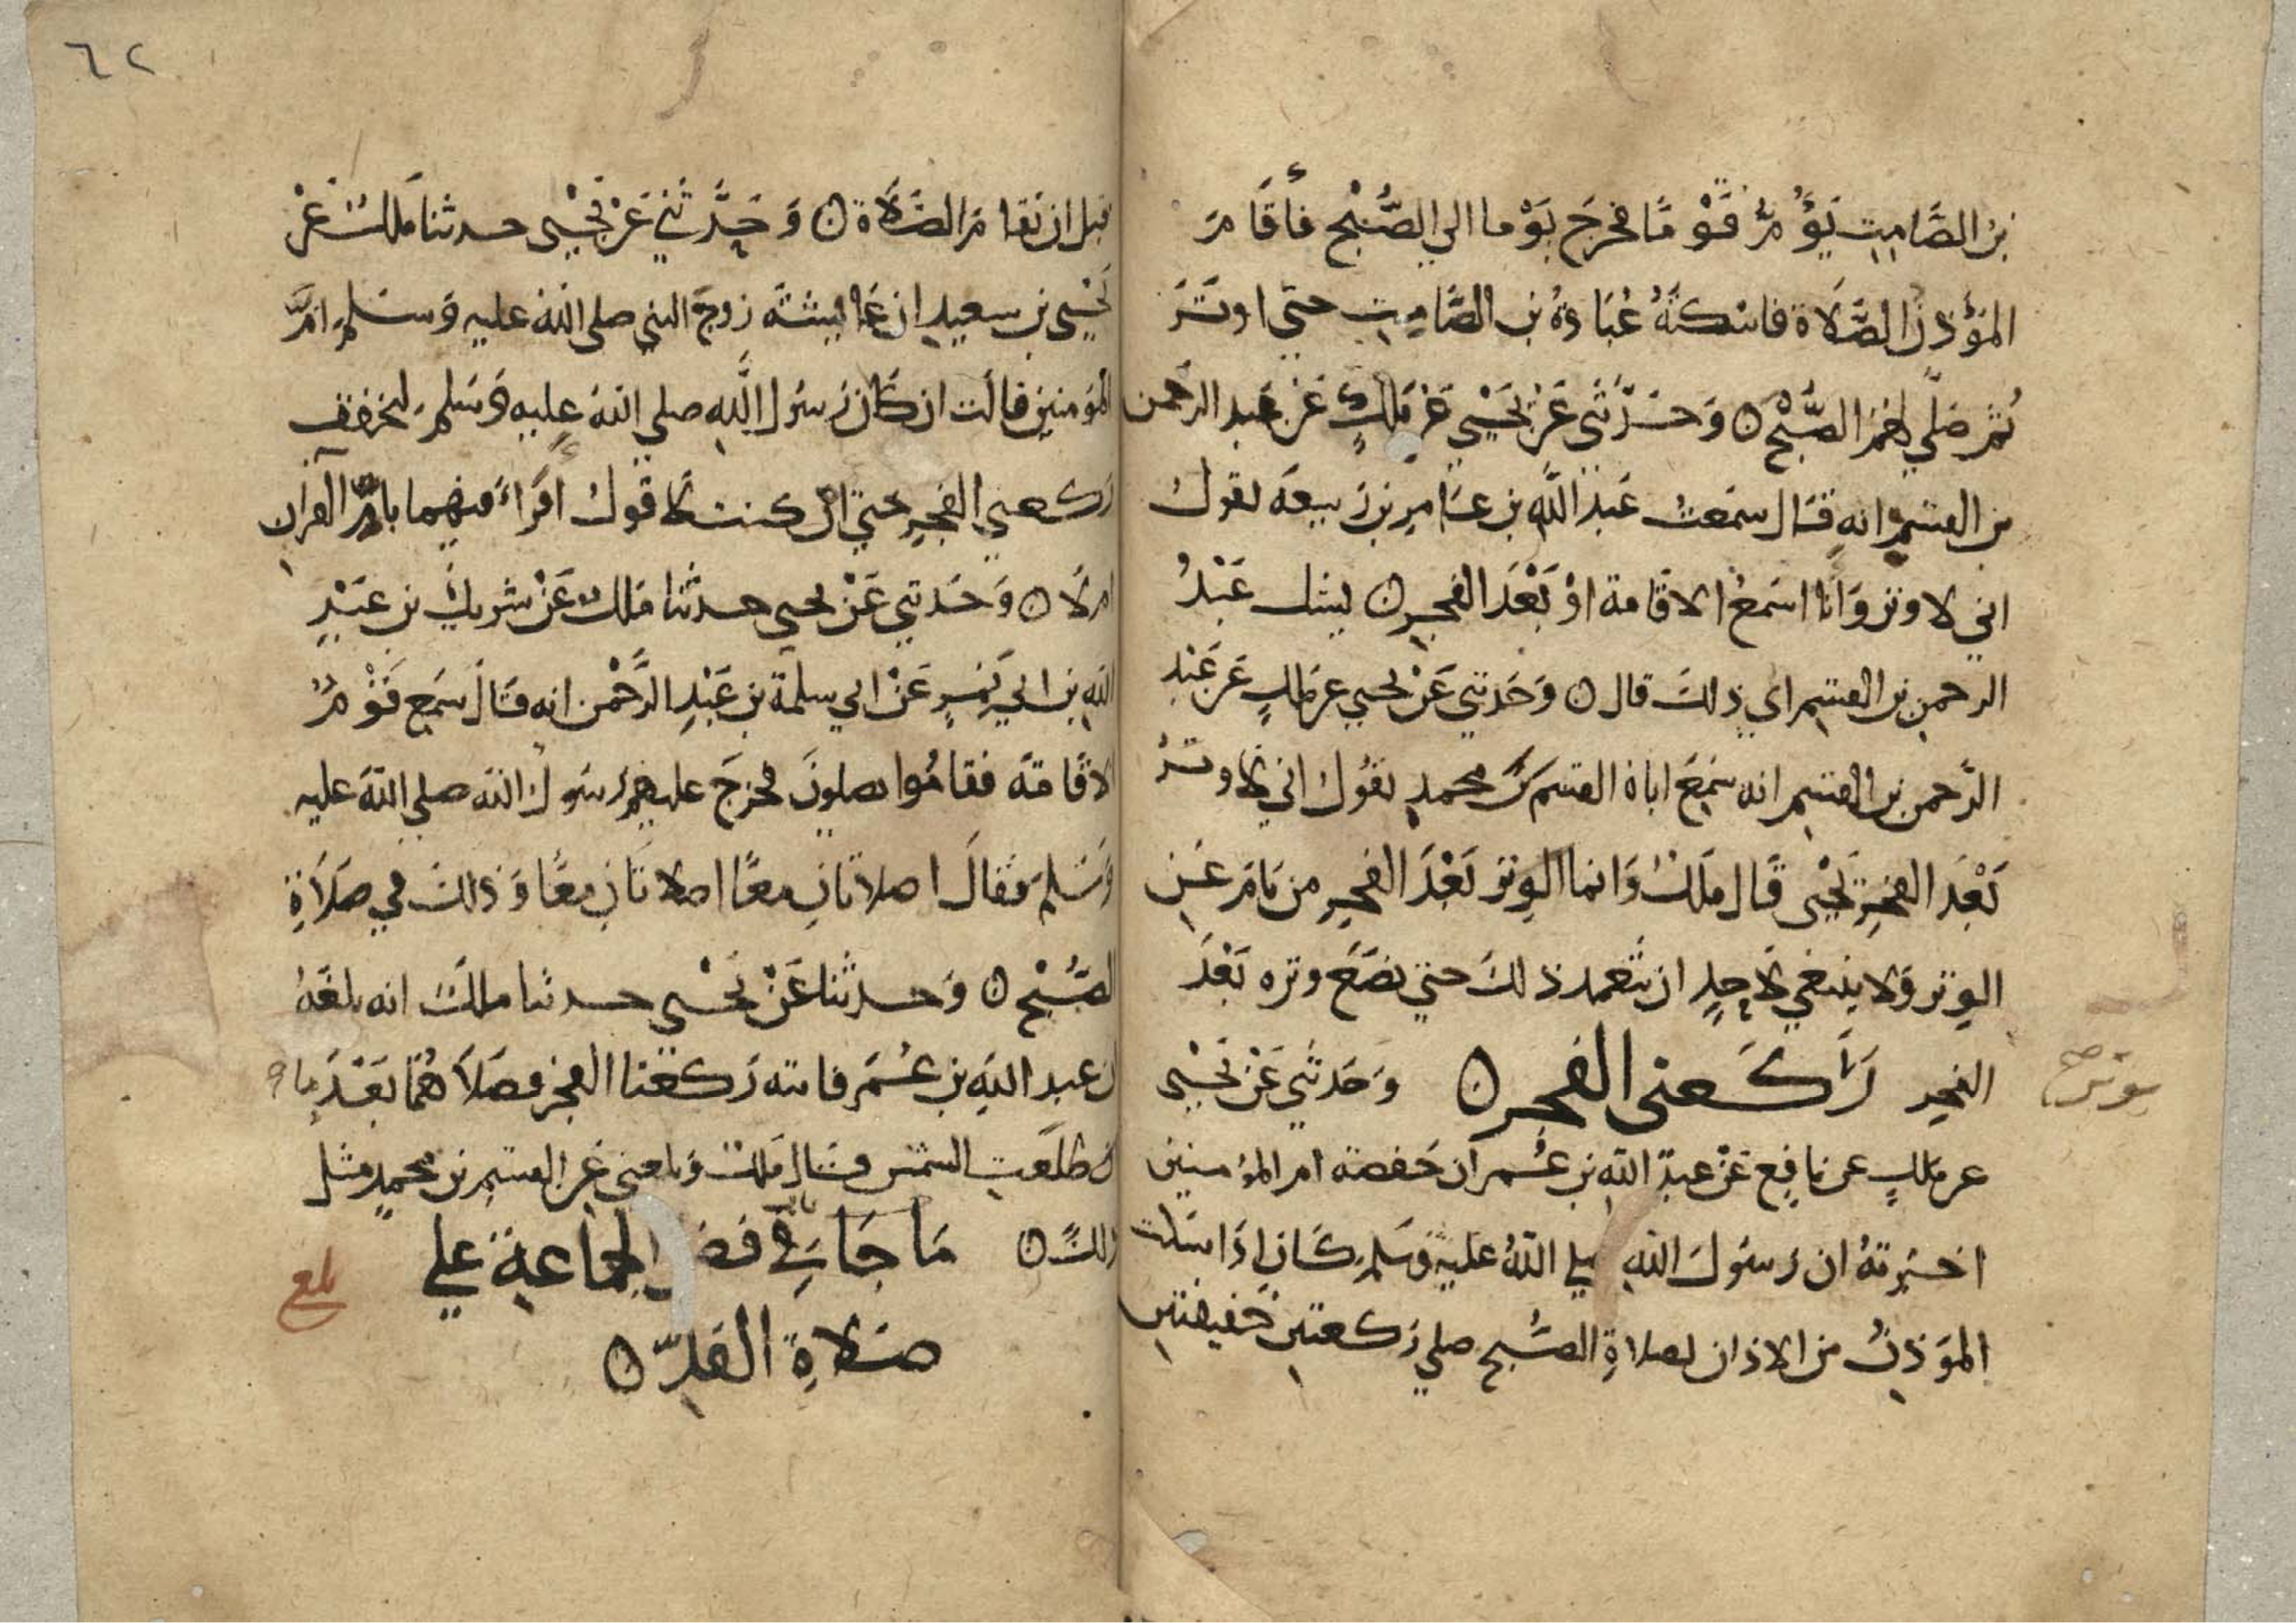 بن الصَّامِتِ يَؤُمُّ قَوْمًا فخرجَ يَوْما الي الصُّبْحِ فأقَامَ
المؤَذنُ الصَّلَاة فاسْكتَهُ عُبَادَةُ بن الصَّامِتِ حتّي اوتَرَ
ثمَّ صَلّي لهمُ الصُّبْحَ ن وَحَدَّثَني عَنْ يَحْيَي عَنْ مَلكٍ عَنْ عَبد الرحمن
بن القسمِ انه قَال سَمعتُ عَبدَ اللَّهِ بن عَامِرِ بن رَبيعَة يقول
اني لاوتر وَانَا اسمَعُ الاقَامة اوْ بَعْدَ الفجرِ ن يشك عَبْدُ
الرحمن بن القسم اي ذلكَ قال ن وَحَدثني عَنْ يحيي عن مَلكٍ عَن عَبْدِ
الرَّحمن بن القسِم انه سَمِعَ اباهُ القسم بن محمدٍ يقُول اني لاوترُ
بَعْدَ الفجرِ يَحْيَي قَال مَلكٌ وَانما الوتر بَعْدَ الفجرِ من نَامَ عَنِ
الوتر وَلا ينبغي لاحِدٍ ان يتعمد ذلكَ حتي يضَعَ وتره بَعْدَ
الفجر رَكَعتي الفجر ن وَحَدثَني عَنْ يَحْيَي
عن مَلكٍ عن نافِع عَنْ عبدِ اللهِ بن عُمر ان حَفصة ام المؤمنين
اخبرتهُ ان رَسُولَ اللهِ صلي اللهُ عليه وَسَلم كَان اذَا سَكت
المؤَذنُ من الاذان لصلاةِ الصُّبح صلي رَكعتين خفيفتين
٦٢
قبل ان تقامَ الصَّلاة ن وَحَدَّثَني عَنْ يَحْيَي حدثنا مَلكٌ عَنْ
يَحْيَي بن سعيدٍ ان عَائيشَة زوجَ النبي صلي اللهُ عليه وَسَلم امَّ
المؤمنين قالت ان كَانَ رَسُول اللَّهِ صلي اللهُ عليه وَسَلم ليخفف
ركعتي الفجر حتي اني كنت لاقول اقَرأَ فيهما بامِّ القرآن
ام لَا ن وَحَدثني عَنْ يحيي حدثنا مَلكٌ عَنْ شريك بن عَبْدِ
اللهِ بن ابي نَمِرٍ عَنْ ابي سلمة بن عَبْدِ الرَّحْمن انه قَال سَمِع قَوْمٌ
الاقَامَة فقامُوا يصلونَ فخرجَ عليهم رَسُول الله صلي اللهُ عليه
وَسَلمَ فقالَ اصلاتَان معًا اصلاتَانِ معًا وَذلكَ في صَلَاةِ
الصُّبْحِ ن وَحدثنا عَنْ يَحْيَي حدثنا مالكٌ انه بلغَهُ
ان عبد اللهِ بن عُمَر فاتته رَكعتا الفجر فصَلاهُمَا بَعْدَ ما
ان طلَعَت الشمس قال مَلكٌ وَبلغني عَن القسمِ بن محمدٍ مثل
ذلكَ ن مَا جَا في فضل الجماعةِ علي
صَلاةِ الفَذِّ ن
بلغ